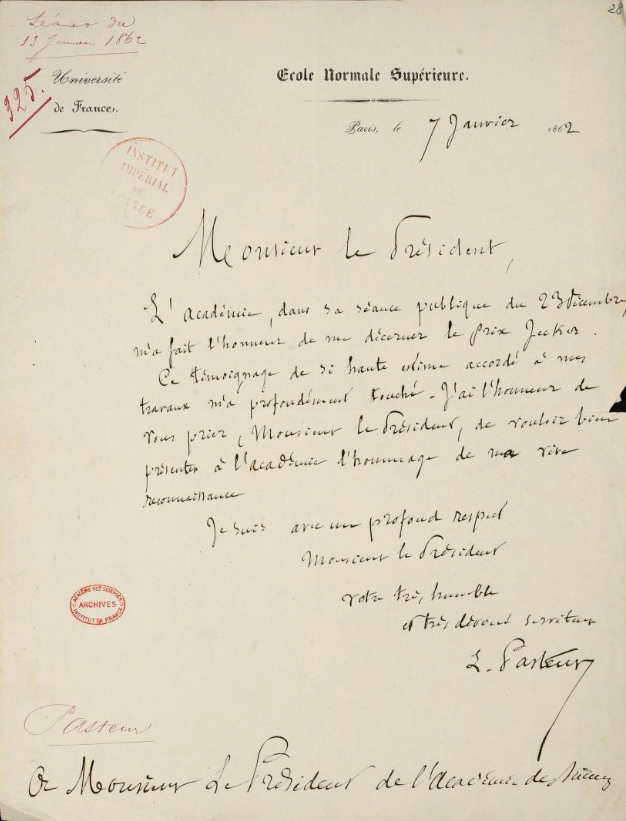 Séance du
13 Janvier 1862
28
325.
Université
de France.
Ecole Normale Supérieure.
Paris, le 7 Janvier 1862
INSTITUT
IMPÉRIAL
DE
FRANCE
Monsieur le Président,
L'Académie, dans sa séance publique du 23 Décembre,
m'a fait l'honneur de me décerner le prix Jecker.
Ce témoignage de si haute estime accordé à mes
travaux m'a profondément touché. J'ai l'honneur de
vous prier, Monsieur le Président, de vouloir bien
présenter à l'académie l'hommage de ma vive
reconnaissance
Je suis avec un profond respect
Monsieur le Président
votre très humble
et très dévoué serviteur
L. Pasteur
ACADÉMIE DES SCIENCES
ARCHIVES
INSTITUT DE FRANCE
Pasteur
A Monsieur Le Président de l'académie des sciences